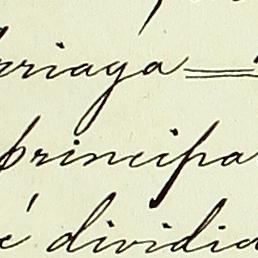 rriaga
principa
é dividia